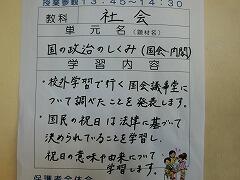 授業参観 13:45～14:30
教科 社会
単元名(題材名)
国の政治のしくみ(国会・内閣)
学習内容
・校外学習で行く国会議事堂に
ついて調べたことを発表します。
・国民の祝日は法律に基づいて
決められていることを学習し、
祝日の意味や由来について
学習します。
保護者会